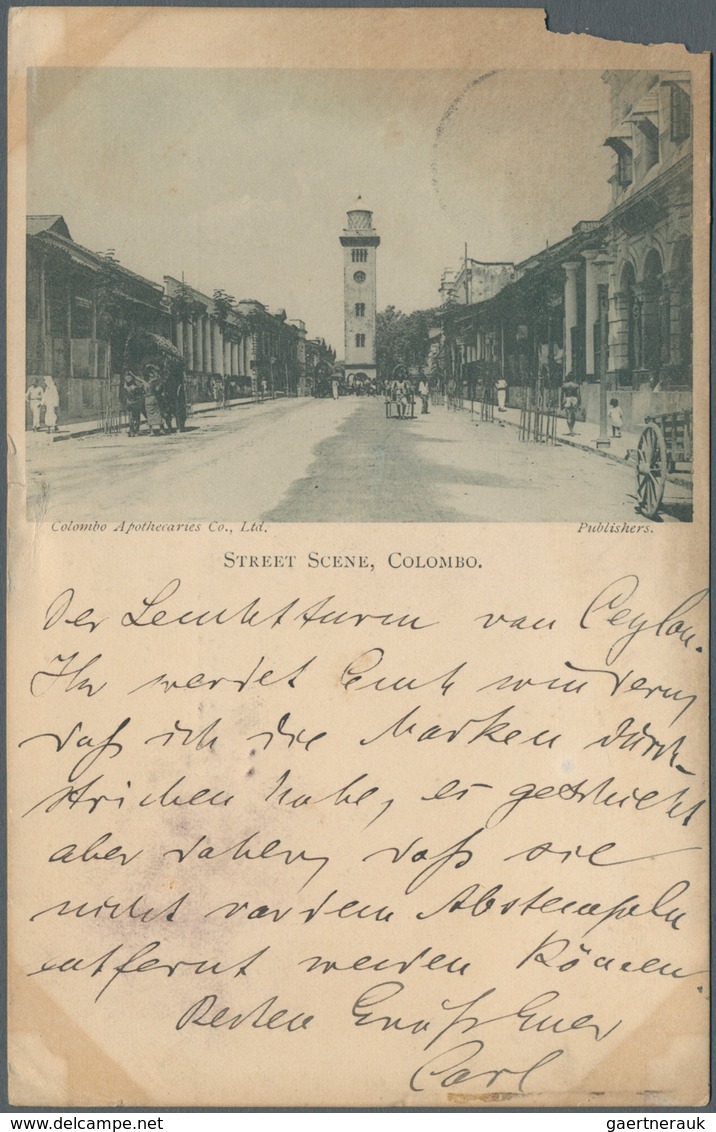 Colombo Apothecaries Co., Ltd. Publishers.
STREET SCENE, COLOMBO.
Der Leuchtturm von Ceylon.
Ihr werdet Euch wundern,
daß ich die Marken durch-
strichen habe, es geschieht
aber daher, daß sie
nicht vor dem Abstempeln
entfernt werden können.
Besten Gruß Euer
Carl
gaertnerauk